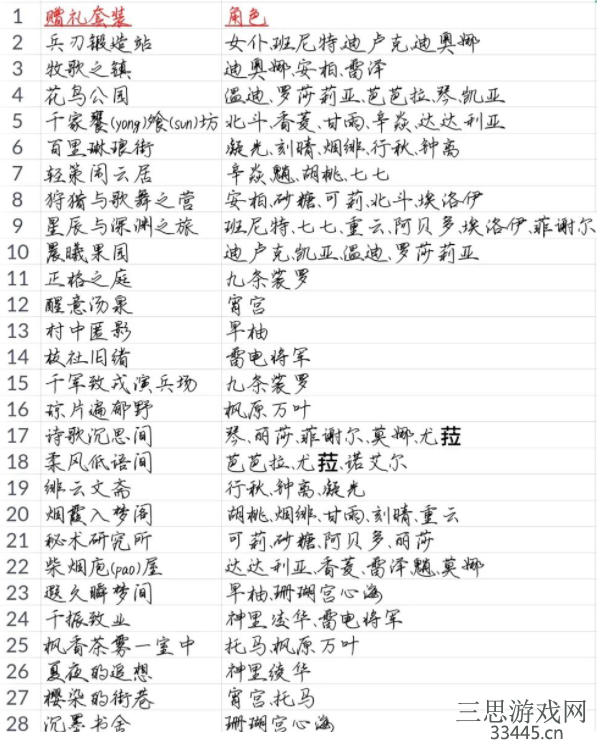 1 赠礼套装 角色
2 兵刃锻造站 女仆、班尼特、迪卢克、迪奥娜
3 牧歌之镇 迪奥娜、安柏、雷泽
4 花鸟公园 温迪、罗莎莉亚、芭芭拉、琴、凯亚
5 千家饔(yong)飧(sun)坊 北斗、香菱、甘雨、辛焱、达达利亚
6 百里琳琅街 凝光、刻晴、烟绯、行秋、钟离
7 轻策闲云居 辛焱、魈、胡桃、七七
8 狩猎与歌舞之营 安柏、砂糖、可莉、北斗、埃洛伊
9 星辰与深渊之旅 班尼特、七七、重云、阿贝多、埃洛伊、菲谢尔
10 晨曦果园 迪卢克、凯亚、温迪、罗莎莉亚
11 正格之庭 九条裟罗
12 醒意汤泉 宵宫
13 村中匿影 早柚
14 枝社旧绪 雷电将军
15 千军致戎演兵场 九条裟罗
16 琼片遍郁野 枫原万叶
17 诗歌沉思间 琴、丽莎、菲谢尔、莫娜、尤菈
18 柔风低语间 芭芭拉、尤菈、诺艾尔
19 绯云文斋 行秋、钟离、凝光
20 烟霞入梦阁 胡桃、烟绯、甘雨、刻晴、重云
21 秘术研究所 可莉、砂糖、阿贝多、丽莎
22 柴烟庖(pao)屋 达达利亚、香菱、雷泽、魈、莫娜
23 遐久瞬梦间 早柚、珊瑚宫心海
24 千振致业 神里凌华、雷电将军
25 枫香茶雾一室中 托马、枫原万叶
26 夏夜的遥想 神里绫华
27 樱染的街巷 宵宫、托马
28 沉墨书舍 珊瑚宫心海
三思游戏网
33445.cn